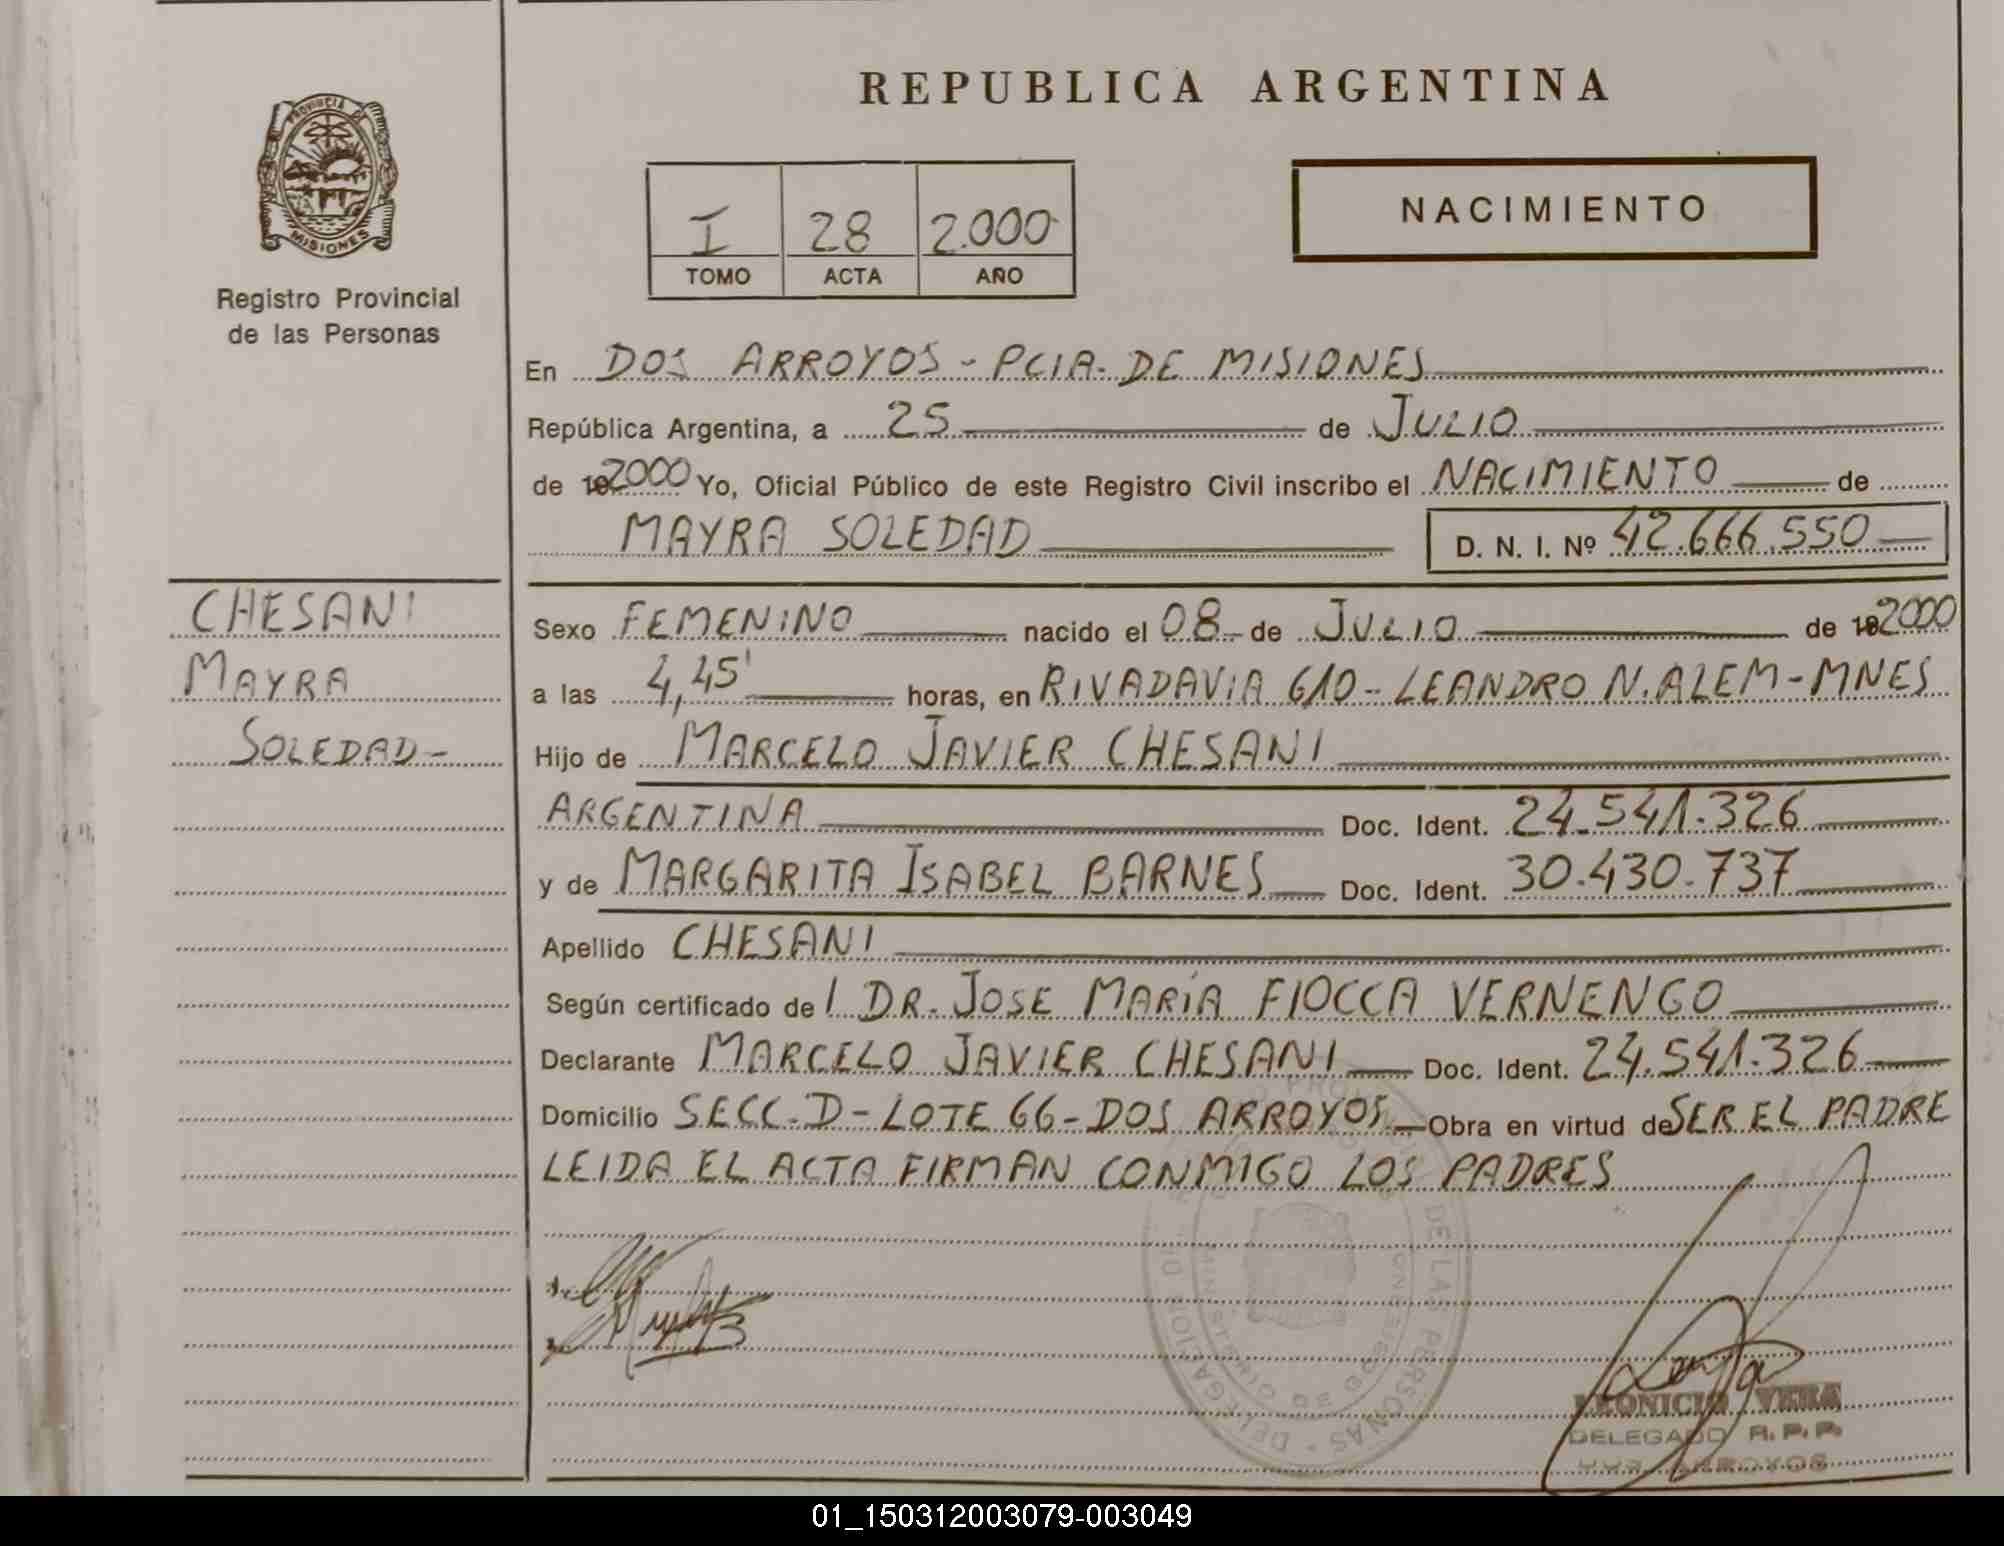 REPUBLICA ARGENTINA
PROVINCIA DE
MISIONES
Registro Provincial
de las Personas
NACIMIENTO
I 28 2.000
TOMO ACTA AÑO
En DOS ARROYOS - PCIA. DE MISIONES
República Argentina, a 25 de JULIO
de 192000 Yo, Oficial Público de este Registro Civil inscribo el NACIMIENTO de
MAYRA SOLEDAD D. N. I. Nº 42.666.550
CHESANI
MAYRA
SOLEDAD-
Sexo FEMENINO nacido el 08 de JULIO de 192000
a las 4,45' horas, en RIVADAVIA 610 - LEANDRO N. ALEM - MNES
Hijo de MARCELO JAVIER CHESANI
ARGENTINA Doc. Ident. 24.541.326
y de MARGARITA ISABEL BARNES Doc. Ident. 30.430.737
Apellido CHESANI
Según certificado de l DR. JOSE MARIA FIOCCA VERNENGO
Declarante MARCELO JAVIER CHESANI Doc. Ident. 24.541.326
Domicilio SECC. D - LOTE 66 - DOS ARROYOS Obra en virtud de SER EL PADRE
LEIDA EL ACTA FIRMAN CONMIGO LOS PADRES
DE LAS PERSONAS
LEONICIO VERA
DELEGADO R. P. P.
DOS ARROYOS
01_150312003079-003049